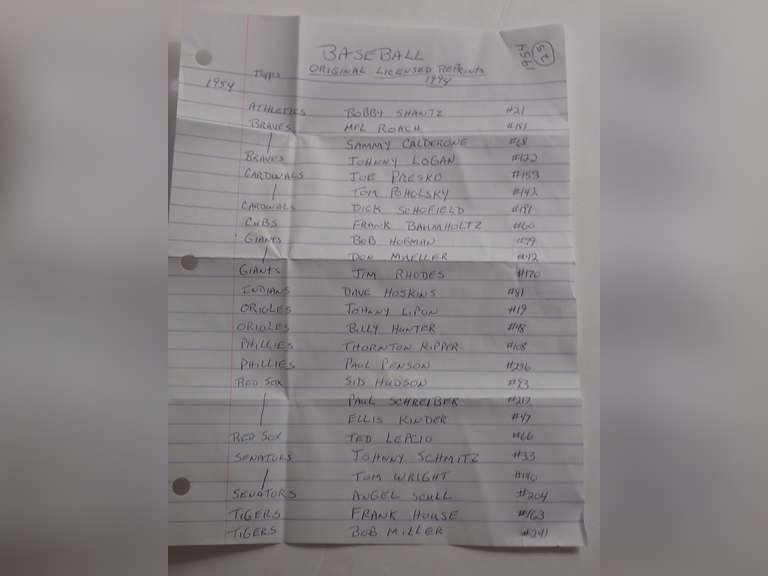 1954 25
BASEBALL
Topps ORIGINAL LICENSED REPRINTS
1954 1994
ATHLETICS BOBBY SHANTZ #21
BRAVES MEL ROACH #181
SAMMY CALDERONE #68
BRAVES JOHNNY LOGAN #122
CARDINALS JOE PRESKO #153
TOM POHOLSKY #142
CARDINALS DICK SCHOFIELD #191
CUBS FRANK BAUMHOLTZ #60
GIANTS BOB HOFMAN #99
DON MUELLER #42
GIANTS JIM RHODES #170
INDIANS DAVE HOSKINS #81
ORIOLES JOHNNY LIPON #19
ORIOLES BILLY HUNTER #48
PHILLIES THORNTON KIPPER #108
PHILLIES PAUL PENSON #236
RED SOX SID HUDSON #93
PAUL SCHREIBER #217
ELLIS KINDER #47
RED SOX TED LEPCIO #66
SENATORS JOHNNY SCHMITZ #33
TOM WRIGHT #140
SENATORS ANGEL SCULL #204
TIGERS FRANK HOUSE #163
TIGERS BOB MILLER #241